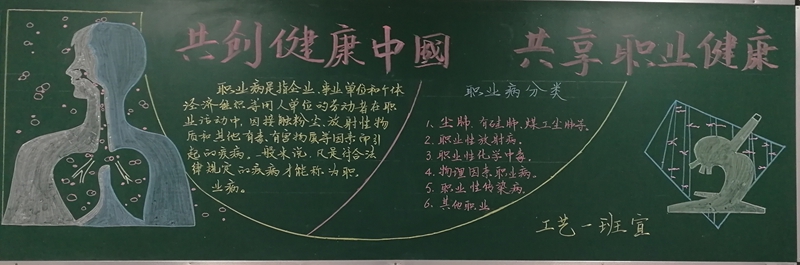 共创健康中國
共享职业健康
职业病是指企业、事业单位和个体
经济组织等用人单位的劳动者在职
业活动中,因接触粉尘、放射性物
质和其他有毒、有害物质等因素而引
起的疾病。一般来说,凡是符合法
律规定的疾病才能称为职
业病。
职业病分类
1、尘肺.有矽肺、煤工尘肺等。
2、职业性放射病。
3、职业性化学中毒。
4、物理因素职业病。
5、职业性传染病。
6、其他职业
工艺一班宣